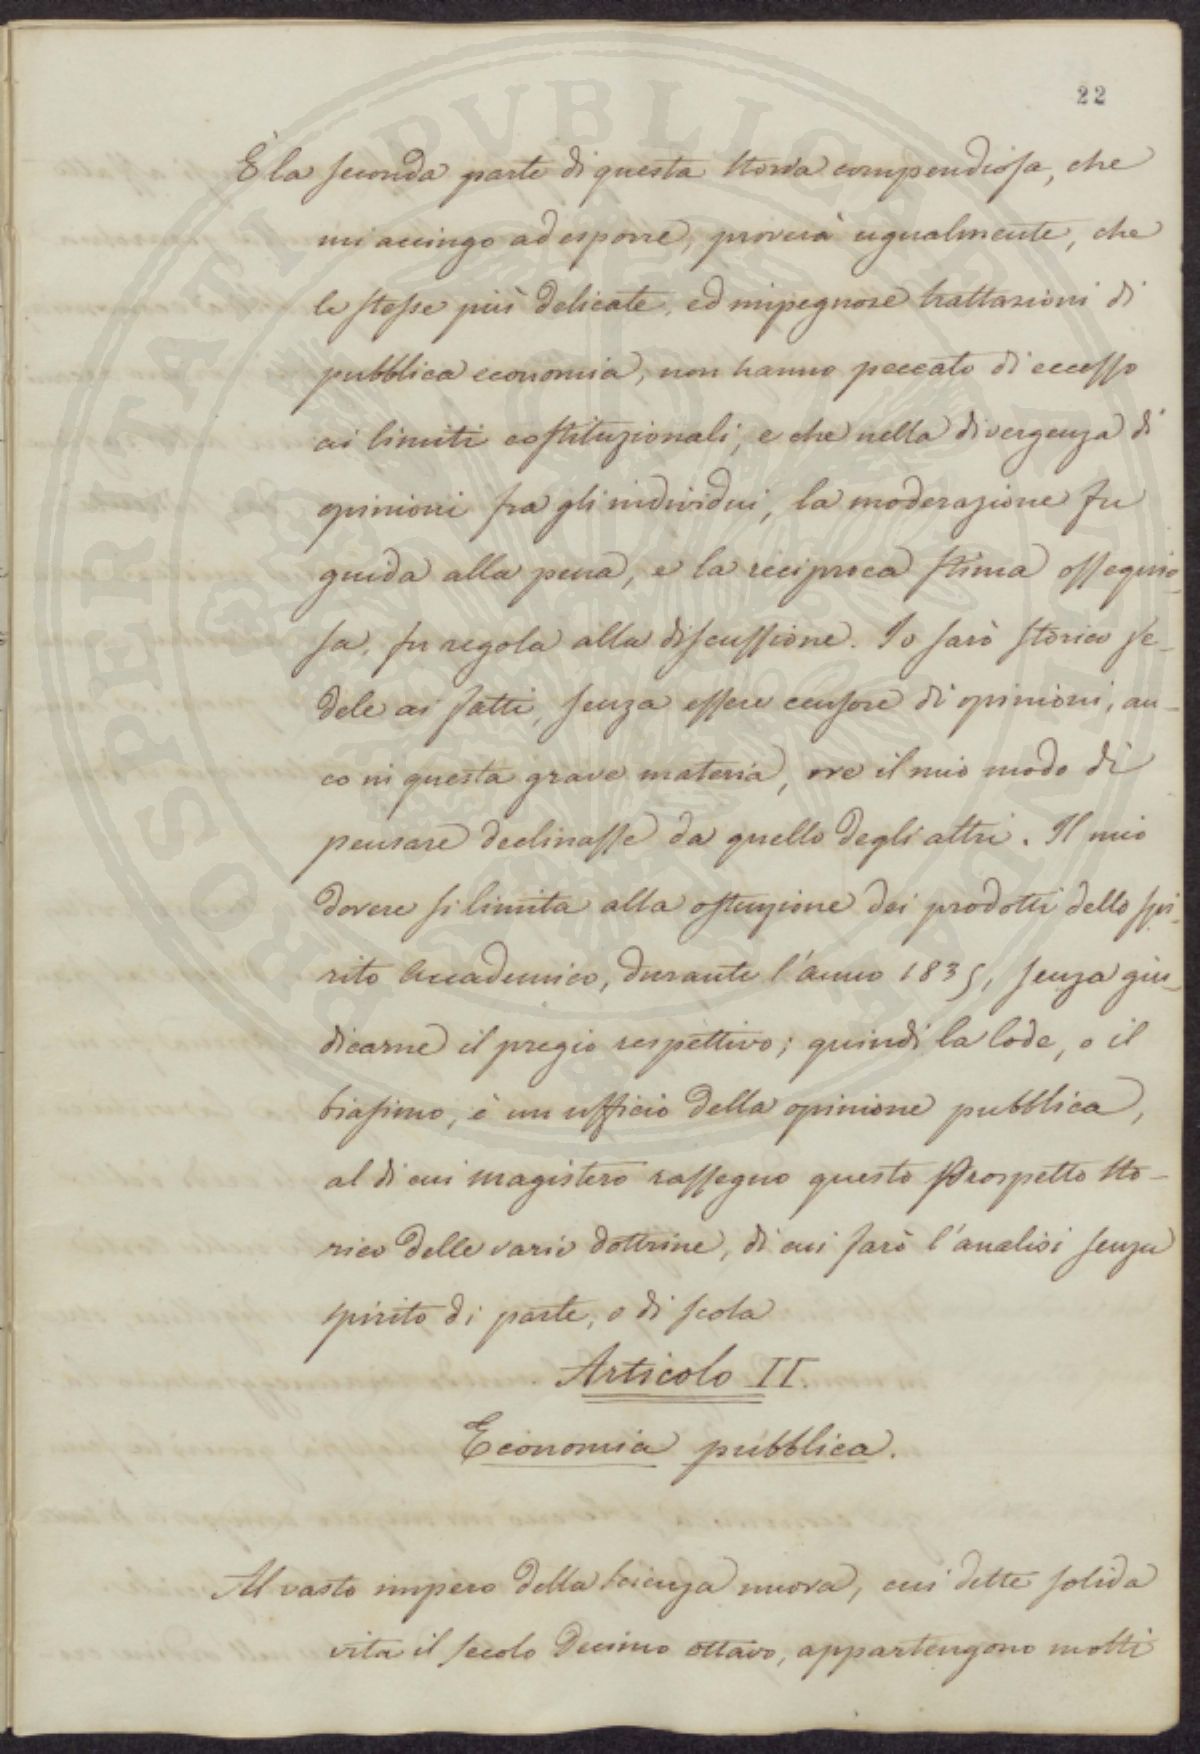 22
È la seconda parte di questa storia compendiosa, che
mi accingo ad esporre, proverà ugualmente, che
le stesse più delicate, ed impegnose trattazioni di
pubblica economia, non hanno peccato di eccesso
ai limiti costituzionali, e che nella divergenza di
opinioni fra gli individui, la moderazione fu
guida alla penna, e la reciproca stima ossequio-
sa, fu regola alla discussione. Io sarò storico fe-
dele ai fatti, senza essere censore di opinioni, an-
co in questa grave materia, ove il mio modo di
pensare declinasse da quello degli altri. Il mio
dovere si limita alla ostenzione dei prodotti dello spi-
rito Accademico, durante l'anno 1835, senza giu-
dicarne il pregio respettivo; quindi la lode, o il
biasimo, è un ufficio della opinione pubblica,
al di cui magistero rassegno questo Prospetto Sto-
rico delle varie dottrine, di cui farò l'analisi senza
spirito di parte, o di scola
Articolo II.
Economia pubblica.
Al vasto impero della scienza nuova, cui dette solida
vita il secolo Decimo ottavo, appartengono molti
PROSPERITATI PUBLICAE AUGENDAE